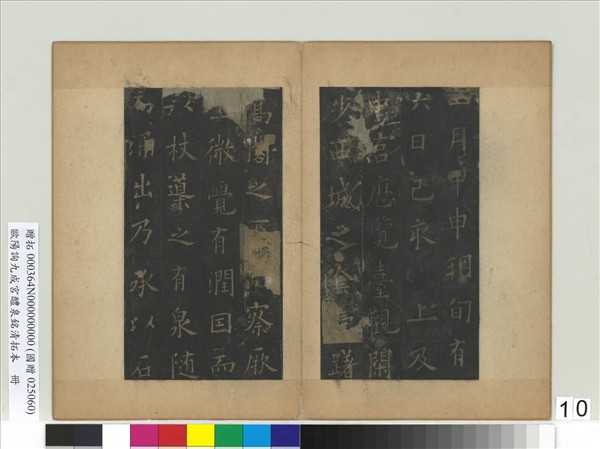 四月甲申朔旬有
六日己亥上及
中宮歷覽臺觀閑
步西城之陰躇
高閣之下俯察厥
土微覺有潤因而
以杖導之有泉随
而涌出乃承以石
贈拓 000364N000000000 (國贈 025060)
歐陽詢九成宮醴泉銘清拓本 冊
10